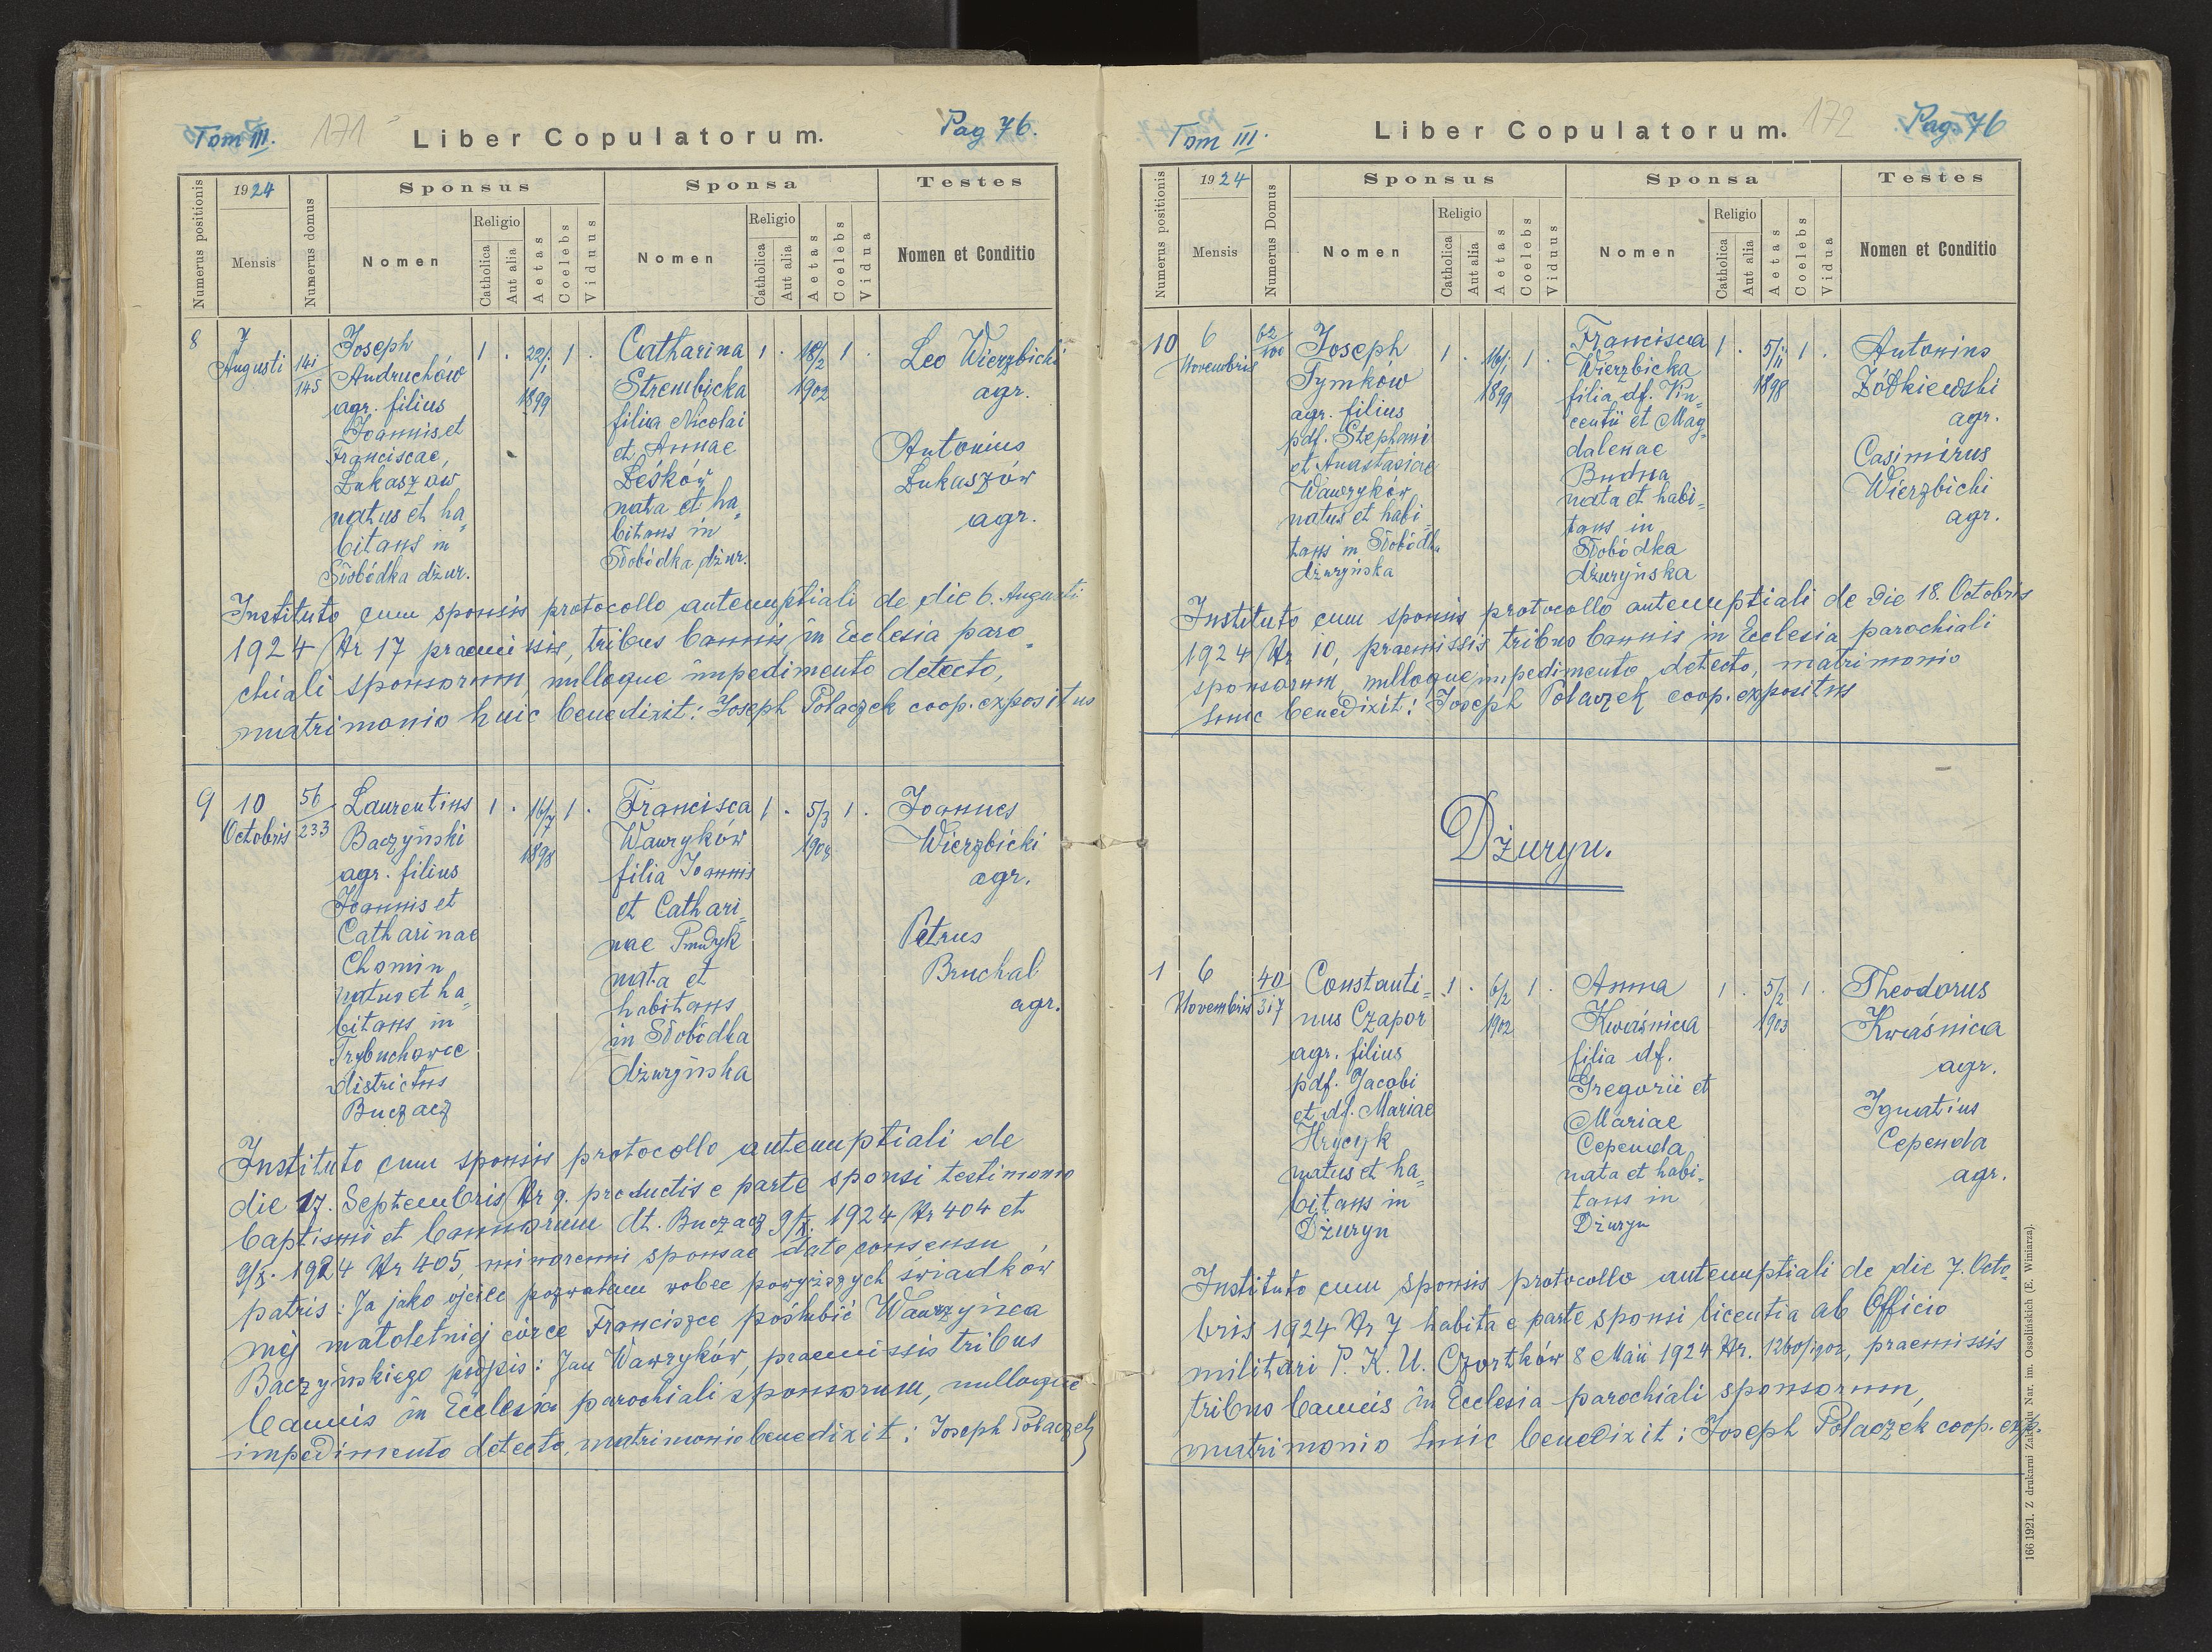 Tom III.
171
Liber Copulatorum.
Pag 76.
Numerus positionis
1924
Mensis
Numerus domus
Sponsus
Nomen
Religio
Catholica
Aut alia
Aetas
Coelebs
Viduus
Sponsa
Nomen
Religio
Catholica
Aut alia
Aetas
Coelebs
Vidua
Testes
Nomen et Conditio
8
7
Augusti
141
145
Joseph
Andruchów
agr. filius
Joannis et
Franciscae
Łukaszów
natus et ha„
bitans in
Słobódka dżur.
1 . 22/1 1 .
1899
Catharina
Strembicka
filia Nicolai
et Annae
Leśków
nata et ha„
bitans in
Słobódka dżur.
1 . 18/2 1 .
1902
Leo Wierzbicki
agr.
Antonius
Łukaszów
agr.
Instituto cum sponsis protocollo antenuptiali de die 6. Augusti
1924 Nr 17 praemissis, tribus bannis in Ecclesia paro„
chiali sponsorum, nulloque impedimento detecto,
matrimonio huic benedixit: Joseph Polaczek coop. expositus
9
10
Octobris
56
233
Laurentius
Baczyński
agr. filius
Joannis et
Catharinae
Chomin
natus et ha„
bitans in
Trybuchowce
districtus
Buczacz
1 . 16/7 1 .
1898
Francisca
Wawryków
filia Joannis
et Cathari„
nae Prudyk
nata et
habitans
in Słobódka
dżuryńska
1 . 5/3 1 .
1904
Joannes
Wierzbicki
agr.
Petrus
Bruchal
agr.
Instituto cum sponsis protocollo antenuptiali de
die 17. Septembris Nr 9. productis e parte sponsi testimonio
baptismi et bannorum dt. Buczacz 9/X. 1924 Nr 404 et
9/X. 1924 Nr 405, minorenni sponsae dato consensu
patris: Ja jako ojciec pozwalam wobec powyższych świadków
mej małoletniej córce Franciszce poślubić Wawrzyńca
Baczyńskiego podpis: Jan Wawryków, praemissis tribus
bannis in Ecclesia parochiali sponsorum, nulloque
impedimento detecto, matrimonio benedixit: Joseph Polaczek
Tom III.
Liber Copulatorum.
172
Pag. 76
Numerus positionis
1924
Mensis
Numerus Domus
Sponsus
Nomen
Religio
Catholica
Aut alia
Aetas
Coelebs
Viduus
Sponsa
Nomen
Religio
Catholica
Aut alia
Aetas
Coelebs
Vidua
Testes
Nomen et Conditio
10
6
Novembris
62
100
Joseph
Tymków
agr. filius
pdf. Stephani
et Anastasiae
Wawryków
natus et habi„
tans in Słobódka
dżuryńska
1 . 16/1 1 .
1899
Francisca
Wierzbicka
filia df. Vin„
centii et Mag„
dalenae
Budna
nata et habi„
tans in
Słobódka
dżuryńska
1 . 5/11 1 .
1898
Antonius
Żółkiewski
agr.
Casimirus
Wierzbicki
agr.
Instituto cum sponsis protocollo antenuptiali de die 18. Octobris
1924 Nr 10, praemissis tribus bannis in Ecclesia parochiali
sponsorum, nulloque impedimento detecto, matrimonio
huic benedixit: Joseph Polaczek coop. expositus
Dżuryn.
1
6
Novembris
40
317
Constanti„
nus Czapor
agr. filius
pdf. Jacobi
et df. Mariae
Hrycyk
natus et ha„
bitans in
Dżuryn
1 . 6/2 1 .
1902
Anna
Kwaśnica
filia df.
Gregorii et
Mariae
Cependa
nata et habi„
tans in
Dżuryn
1 . 5/2 1 .
1903
Theodorus
Kwaśnica
agr.
Ignatius
Cependa
agr.
Instituto cum sponsis protocollo antenuptiali de die 7. Octo„
bris 1924 Nr 7 habita e parte sponsi licentia ab Officio
militari P. K. U. Czortków 8 Maii 1924 Nr. praemissis
tribus bannis in Ecclesia parochiali sponsorum,
matrimonio huic benedixit: Joseph Polaczek coop. exp.
166 1921. Z drukarni Zakładu Nar. im. Ossolińskich (E. Winiarza).